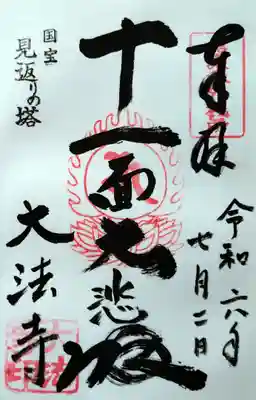 奉拝
令和六年
七月二日
十一面大悲殿
大法寺
国宝
見返りの塔